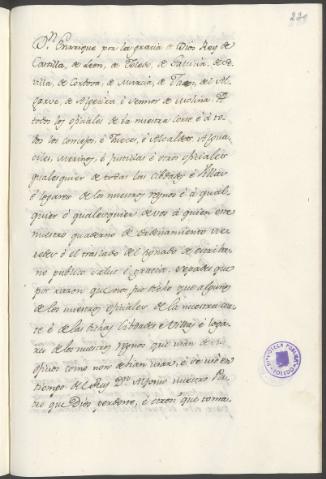 221
Dn. Enrrique por la gracia de Dios Rey de
Castilla, de Leon, de Toledo, de Galicia, de Se-
villa, de Cordova, de Murcia, de Jaen, del Al-
garve, de Algecira é Sennor de Molina. A
todos los oficiales de la nuestra corte é á to-
dos los concejos, é Jueces, é Alcaldes, Algua-
ciles, Merinos, é Justicias é otros oficiales
qualesquier de todas las Cibdades é Villas
é logares de los nuestros regnos é á qual-
quier ó qualesquier de vos á quien este
nuestro quaderno de ordenamiento vie-
redes ó el traslado del signado de escribano
publico salud é gracia, sepades que
por razon que nos fue dicho que algunos
de los nuestros oficiales de la nuestra cor-
te é de las otras Cibdades é Villas é loga-
res de los nuestros regnos que usan de
oficios como non debian usar, é
tiempo del Rey Dn. Alfonso nuestro Pa-
dre que Dios perdone, é otrosi que toman